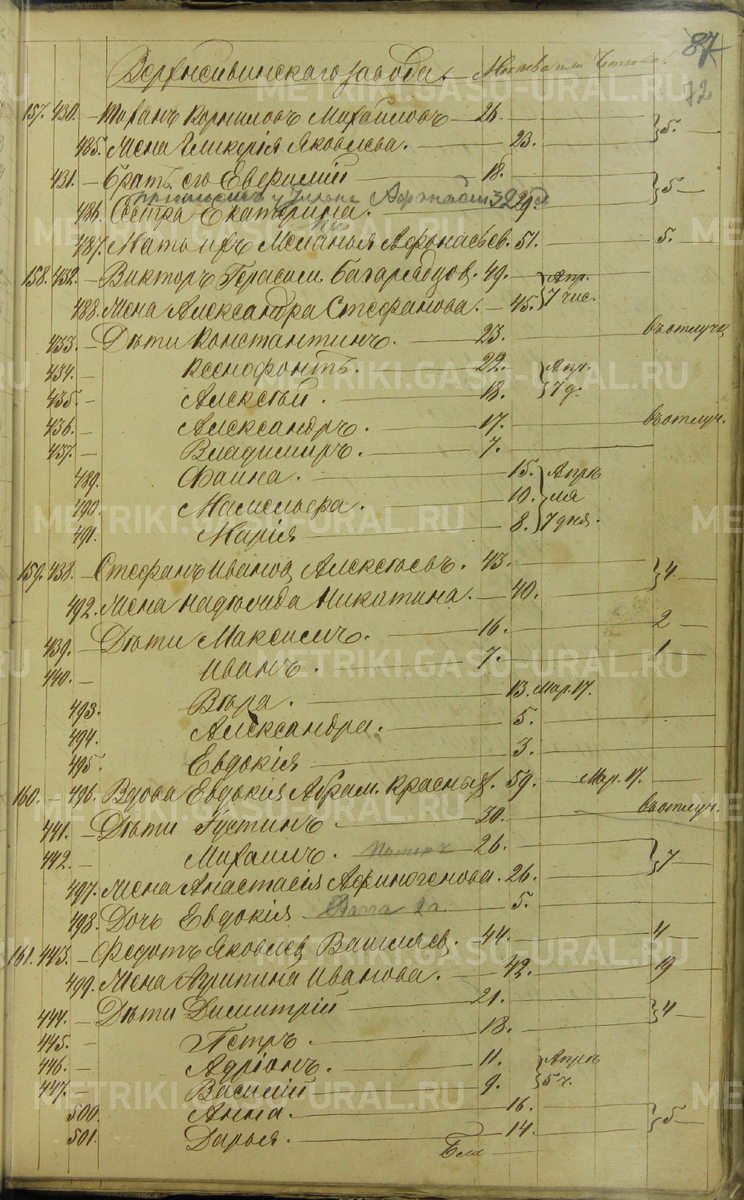 87
72
Верхнесивинскаго завода.
157. 430. — Тиханъ Корниловъ Михайловъ — 26.
485. Жена Гликерія Яковлева. — 23. 5.
431. — Братъ его Евфимій — 18.
486. Сестра Екатерина. 5 —
487. Мать ихъ Меланья Афонасьев. 51. 5.
158. 432. — Викторъ Герасим. Багарядцов. 49. Апр.
488. Жена Александра Стефанова. — 45. 7 чис.
433. — Дѣти Константинъ. — 23. въ отлучк
434. — Ксенофонтъ. — 22. Апр.
435. — Алексѣй. — 18. 7 д.
436. — Александръ. — 17. въ отлуч.
437. — Владимиръ. — 7.
489. Фаина. — 15. Апрѣ
490. Мамельфа. — 10. ля
491. Марія — 8. 7 дня.
159. 438. — Стефанъ Иванов Алексѣевъ. 43.
492. Жена Надежда Никитина. — 40. 4
439. — Дѣти Максимъ. — 16. 2
440. — Иванъ. — 7. 1
493. Вѣра. — 13. Мар. 17.
494. Александра. — 5.
495. Евдокія — 3.
160. — 496. Вдова Евдокія Абрам. Красных. 59. — Мар. 17.
441. — Дѣти Густинъ — 30. въ отлуч.
442. — Михаилъ. — 26.
497. Жена Анастасія Афиногенова. 26. 7
498. Дочь Евдокія — 5.
161. 443. — Федотъ Яковлев Вашляев. 44. 4
499. Жена Агрипина Иванова. — 42. 19
444. — Дѣти Димитрій — 21.
445. — Петръ. — 18. 4
446. — Адріонъ. — 11. Апрѣ
447. — Василій — 9. 5 ч.
500. Анна. — 16.
501. Дарья. — 14. 5 —
METRIKI.GASO-URAL.RU